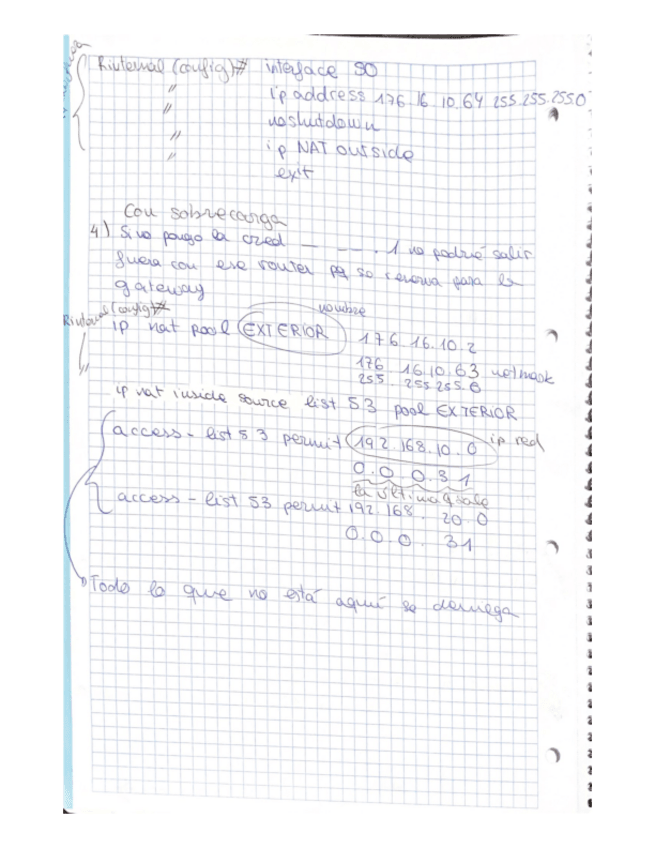 Rinternal (config)# interface S0
" ip address 176.16.10.64 255.255.255.0
" no shutdown
" ip NAT outside
" exit
Con sobrecarga
4) Si no pongo la cred _ _ _ . 1 no podré salir
fuera con ese router pq se reserva para la
gateway
nombre
Rinternal (config)#
ip nat pool EXTERIOR 176.16.10.2
" 176 16.10.63 netmask
255 255.255.0
ip nat inside source list 53 pool EXTERIOR
access-list 53 permit 192.168.10.0 ip red
0.0.0.31
la última q sale
access-list 53 permit 192.168.20.0
0.0.0.31
Todo lo que no está aquí se deniega